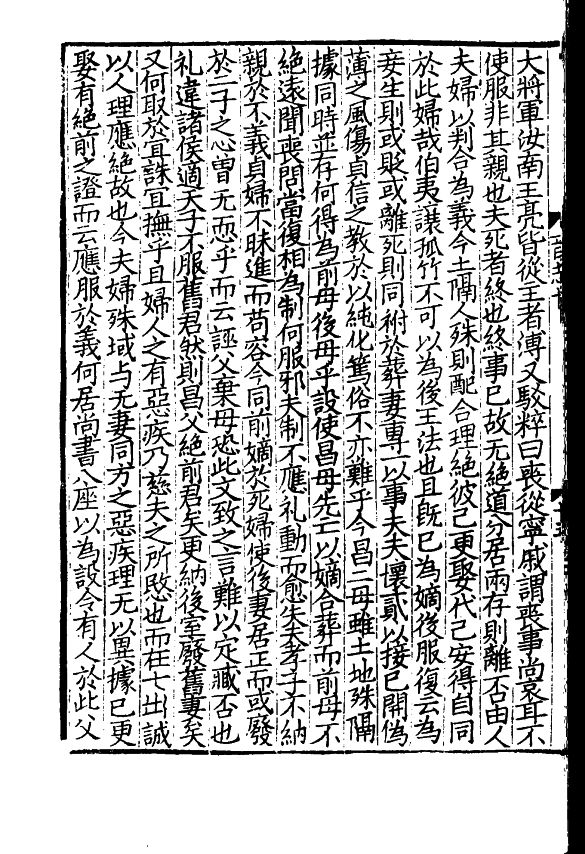 大將軍汝南王亮皆從王者溥又駁粹曰喪從寧戚謂喪事尚哀耳不
使服非其親也夫死者終也終事已故无絶道分居兩存則離否由人
夫婦以判合為義今土隔人殊則配合理絶彼己更娶代己安得自同
於此婦哉伯夷讓孤竹不可以為後王法也且既已為嫡後服復云為
妾生則或貶或離死則同祔於葬妻專一以事夫夫懷貳以接己開偽
薄之風傷貞信之教於以純化篤俗不亦難乎今昌二母雖土地殊隔
據同時並存何得為前母後母乎設使昌母先亡以嫡合葬而前母不
絶遠聞喪問當復相為制何服邪夫制不應礼動而愈失夫孝子不納
親於不義貞婦不昧進而苟容今同前嫡於死婦使後妻居正而或廢
於二子之心曽无恧乎而云誣父棄母恐此文致之言難以定臧否也
礼違諸侯適天子不服舊君然則昌父絶前君矣更納後室廢舊妻矣
又何取於宜誅宜撫乎且婦人之有惡疾乃慈夫之所愍也而在七出誠
以人理應絶故也今夫婦殊域与无妻同方之惡疾理无以異據已更
娶有絶前之證而云應服於義何居尚書八座以為設令有人於此父